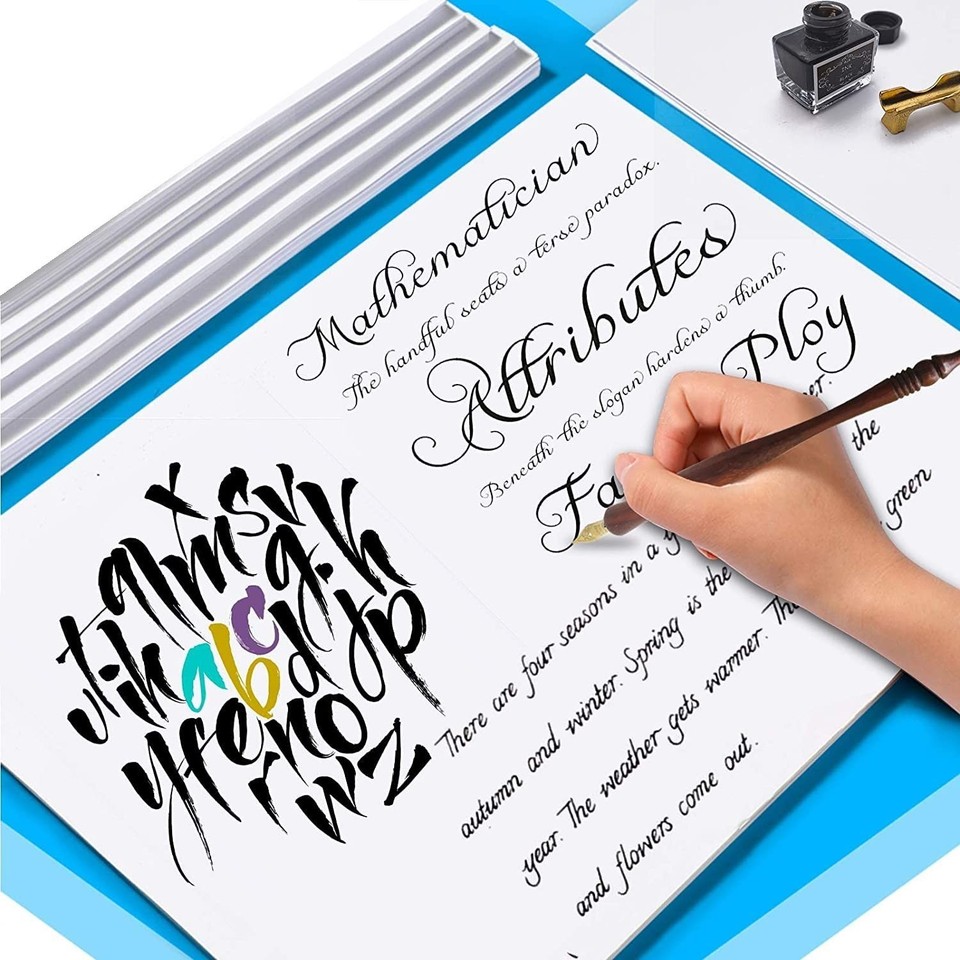 Mathematician
The handful seats a terse paradox.
Attributes
Beneath the slogan hardens a thumb.
Ploy
Fa
the
There are four seasons in a green
autumn and winter. Spring is the
year. The weather gets warmer. The
and flowers come out.
x s v
a l m g . k
t i h a b c d j p
y f e n o
r w z